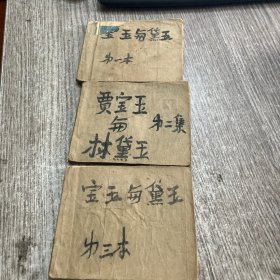 宝玉与黛玉
第一本
贾宝玉
与
林黛玉
第二集
宝玉与黛玉
第三本